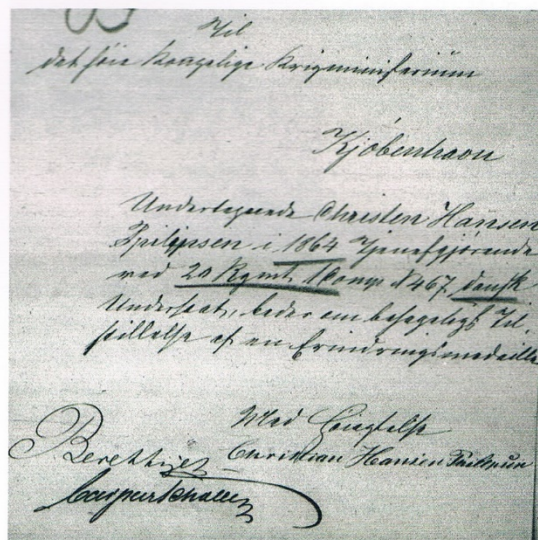 Til
det høie Kongelige Krigsministerium
Kjøbenhavn
Undertegnede Christen Hansen
Philipsen i 1864 Tjenestgjørende
ved 20 Rgmt. 1 Komp. N 467, dansk
Undersaat, beder om behageligst Til-
stillelse af en Erindringsmedaille
Med Høiagtelse
Christian Hansen
Berettiget